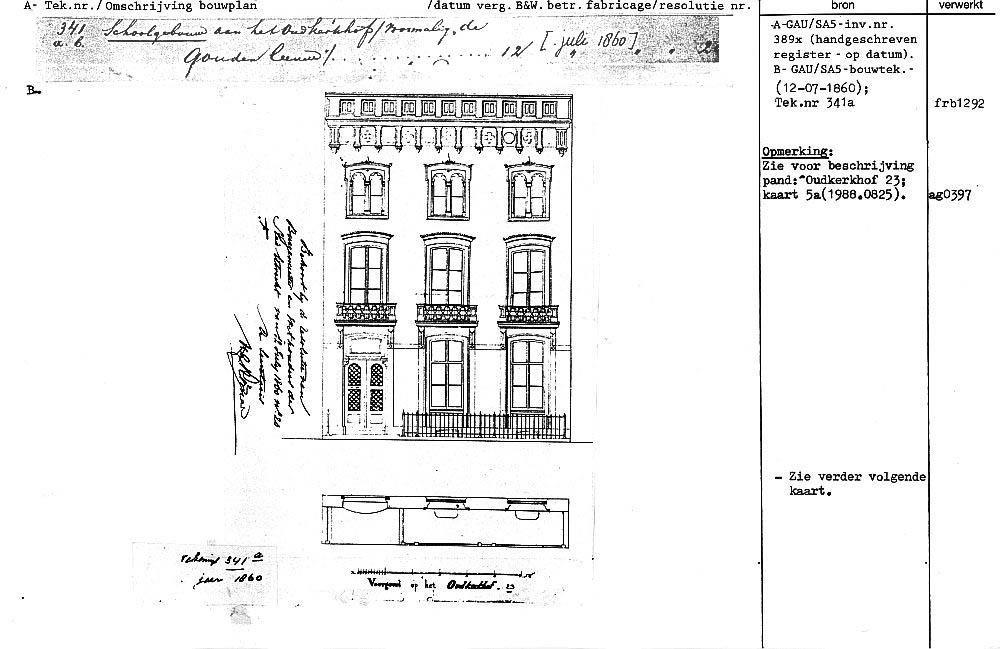 A- Tek.nr./Omschrijving bouwplan /datum verg. B&W. betr. fabricage/resolutie nr. bron verwerkt
341 Schoolgebouw aan het Oudkerkhof/voormalig, de
a. b. Gouden leeuw/. . . . . . . . . . 12 [. juli 1860]
B-
-A-GAU/SA5-inv.nr.
389x (handgeschreven
register - op datum).
B- GAU/SA5-bouwtek.-
(12-07-1860);
Tek.nr 341a frb1292
Opmerking:
Zie voor beschrijving
pand: Oudkerkhof 23;
kaart 5a(1988.0825). ag0397
Behoort bij de resolutie van
Burgemeester en Wethouders der
De Secretaris
- Zie verder volgende
kaart.
341 a
jaar 1860
Voorgevel op het Oudkerkhof. 23